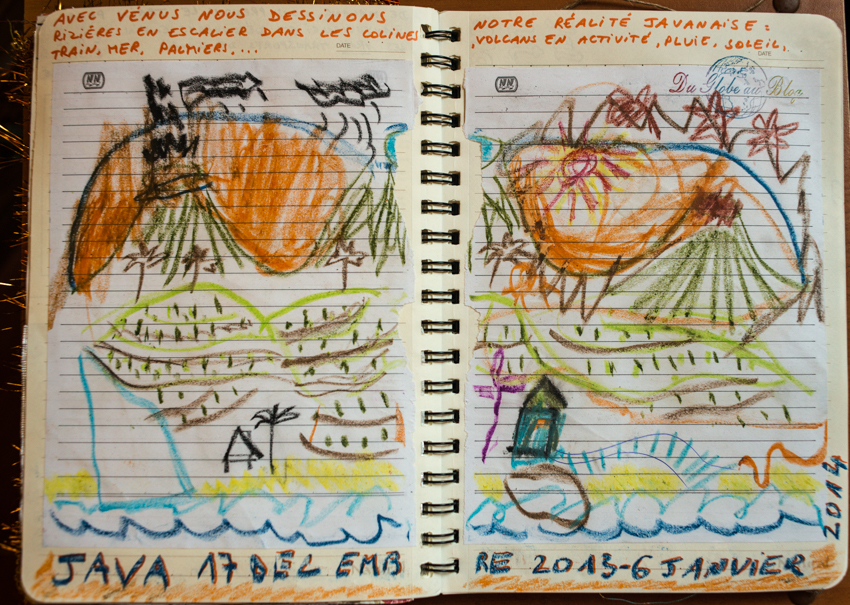 AVEC VÉNUS NOUS DESSINONS
RIZIÈRES EN ESCALIER DANS LES COLINES
TRAIN, MER, PALMIERS,...
DATE
NOTRE RÉALITÉ JAVANAISE :
VOLCANS EN ACTIVITÉ, PLUIE, SOLEIL,..
DATE
Du Globe au Blog
JAVA 17 DECEMB
RE 2013-6 JANVIER
2014